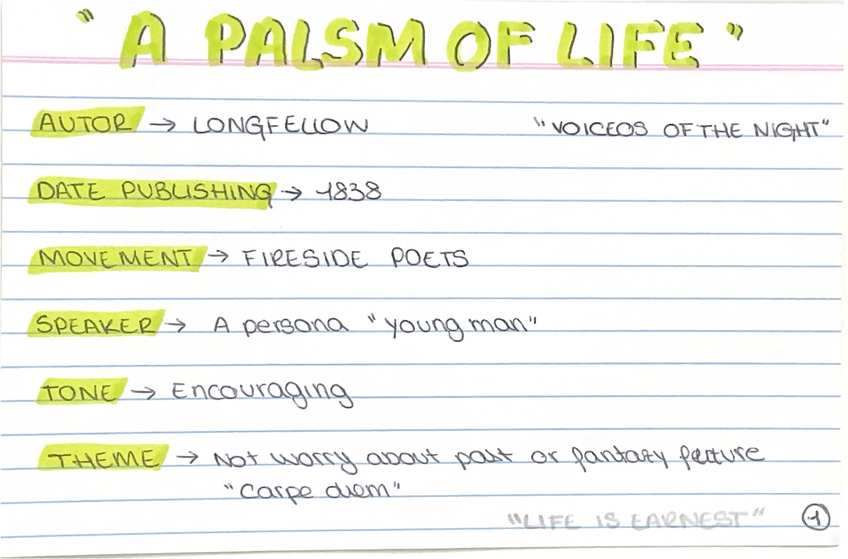 "A PALSM OF LIFE"
AUTOR → LONGFELLOW "VOICEOS OF THE NIGHT"
DATE PUBLISHING → 1838
MOVEMENT → FIRESIDE POETS
SPEAKER → A persona "young man"
TONE → Encouraging
THEME → Not worry about past or fantazy fucture
"Carpe diem"
"LIFE IS EARNEST" 1